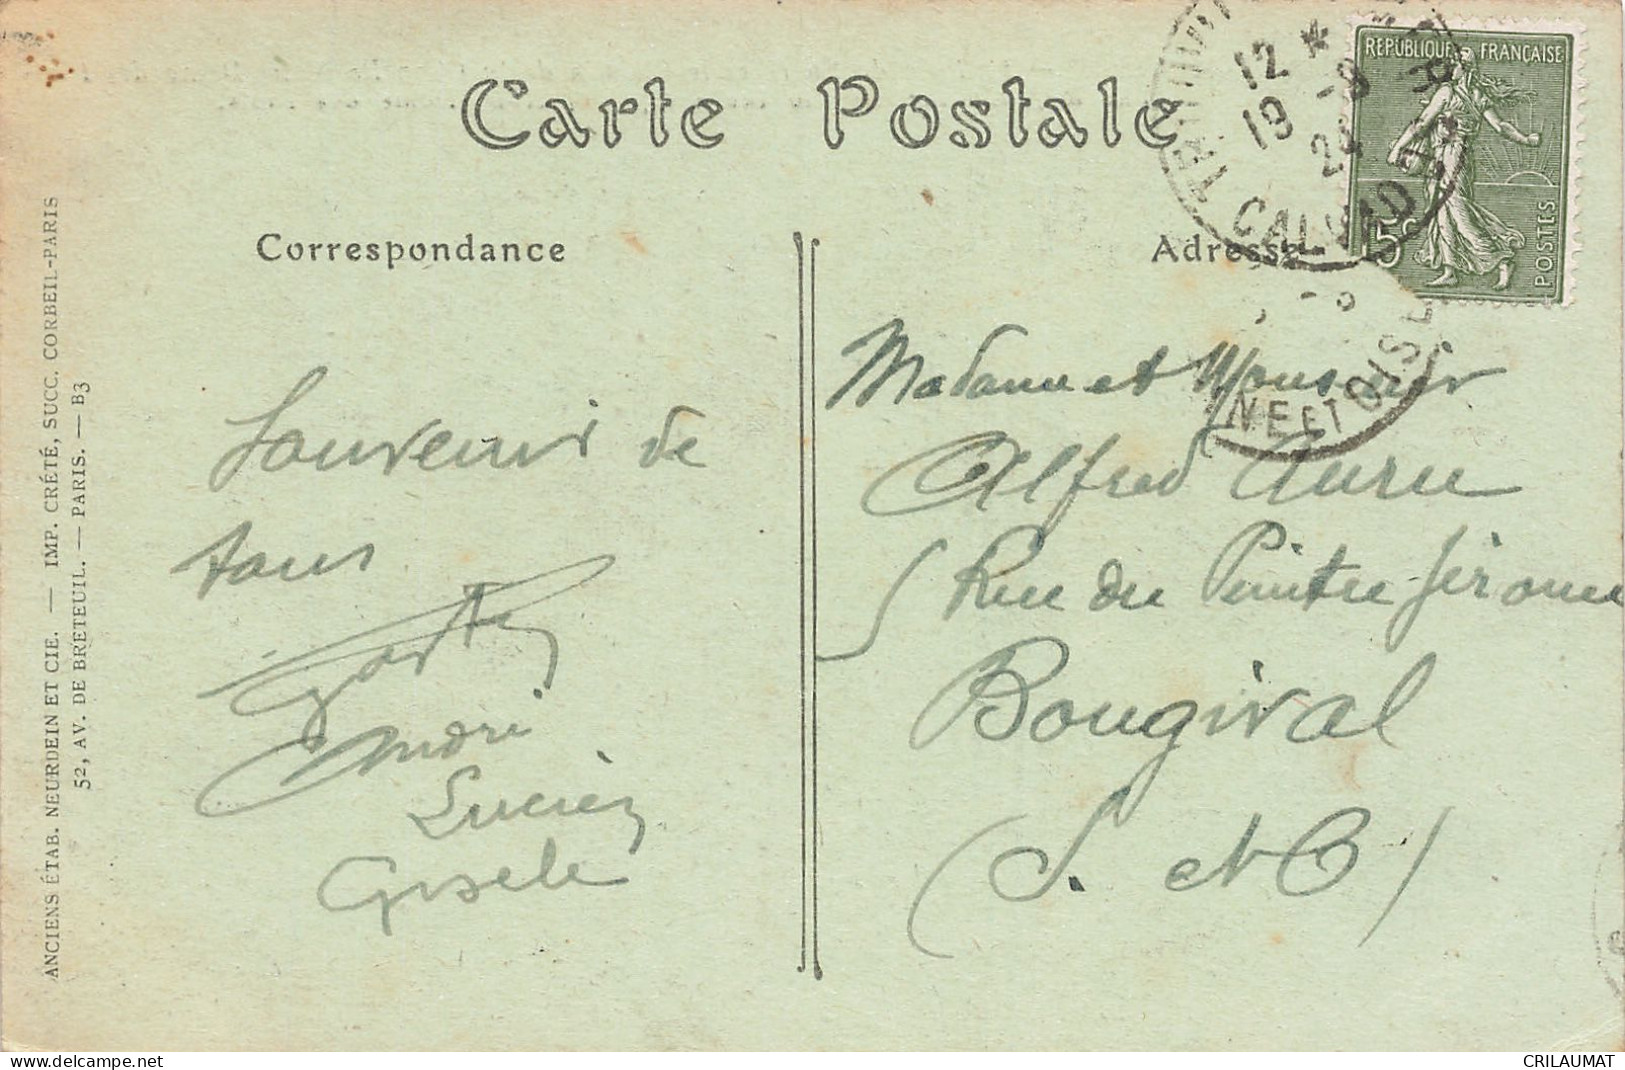 Carte Postale
Correspondance
Adresse
RÉPUBLIQUE FRANÇAISE
15c
POSTES
12 *
19 -9
24
CALVADOS
NE ET OISE
Souvenir de
tous
André
Lucien
Gisèle
Madame et Monsieur
Alfred Aureu
5 Rue du Peintre Gérome
Bougival
(S. et O)
ANCIENS ÉTAB. NEURDEIN ET CIE. — IMP. CRÉTÉ, SUCC. CORBEIL-PARIS
52, AV. DE BRETEUIL. — PARIS. — B3
delcampe.net
CRILAUMAT